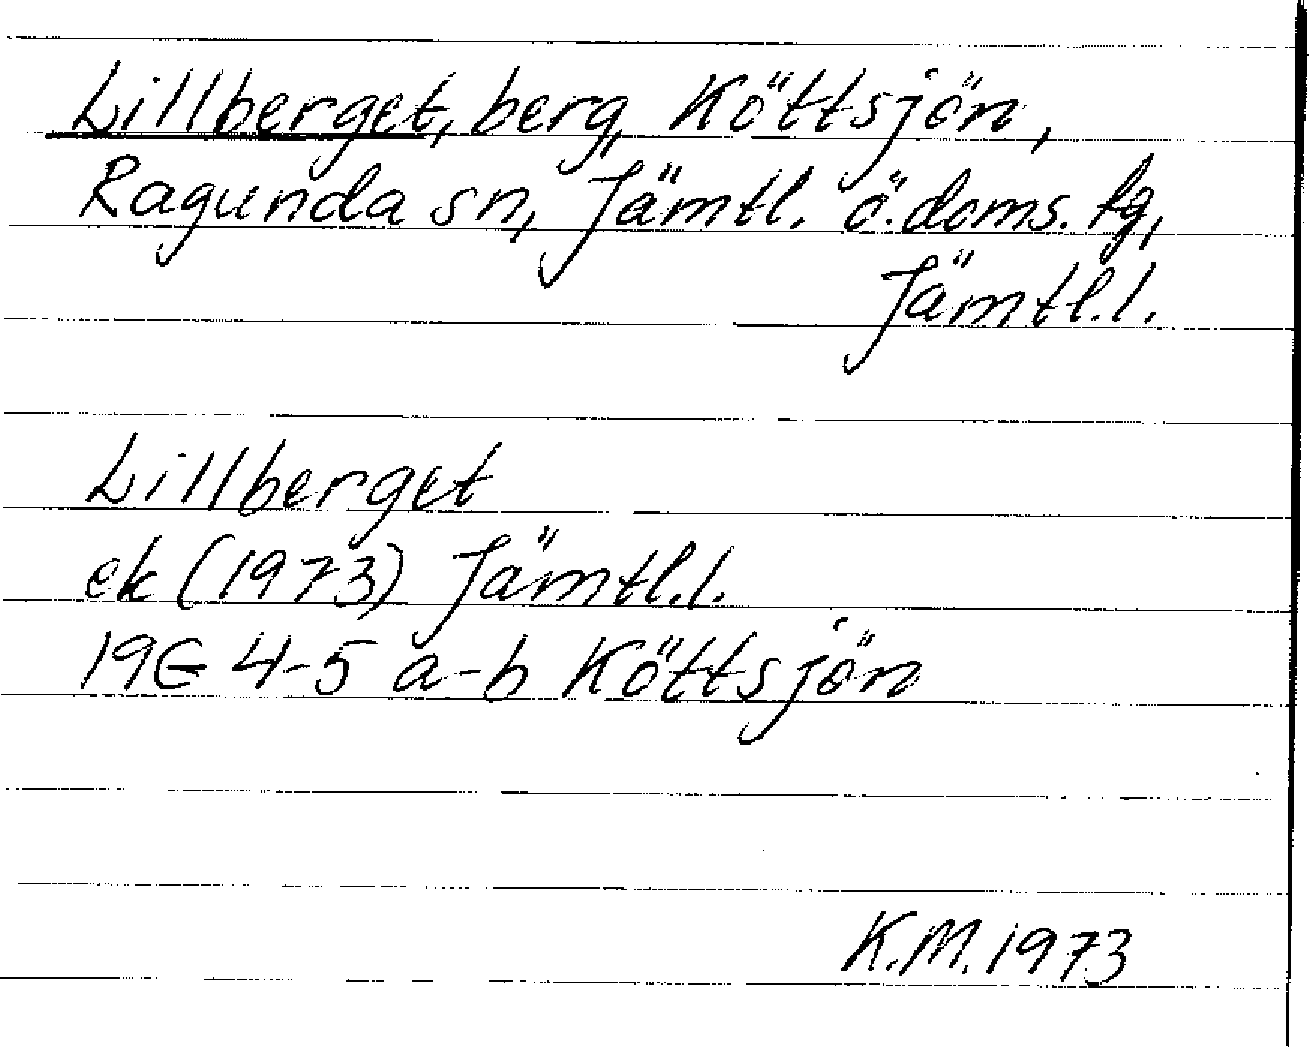 Lillberget, berg, Köttsjön,
Ragunda sn, Jämtl. ö. doms. fg,
Jämtl.l.
Lillberget
ek (1973) Jämtl.l.
19G 4-5 a-b Köttsjön
K.M. 1973